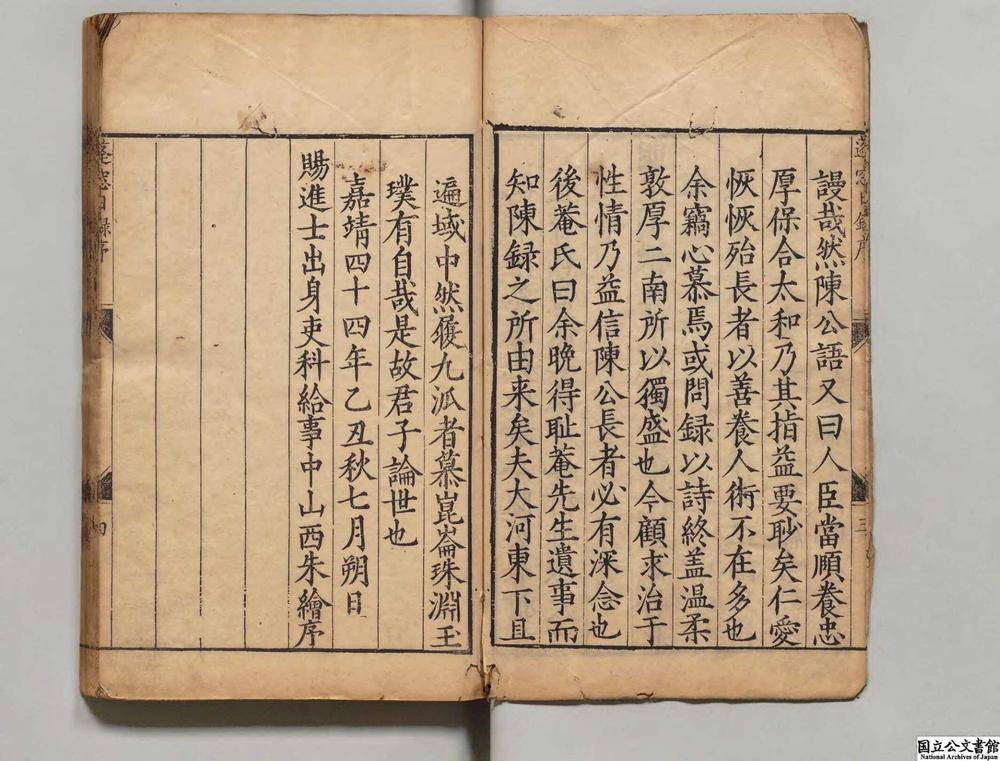 謾哉然陳公語又曰人臣當順養忠
厚保合太和乃其指益要眇矣仁愛
恢恢殆長者以善養人術不在多也
余竊心慕焉或問録以詩終盖温柔
敦厚二南所以獨盛也今顧求治于
性情乃益信陳公長者必有深念也
後菴氏曰余晚得耻菴先生遺事而
知陳録之所由来矣夫大河東下且
三
遍域中然履九派者慕崑崙珠淵玉
璞有自哉是故君子論世也
嘉靖四十四年乙丑秋七月朔日
賜進士出身吏科給事中山西朱繪序
蓬窓日録序
四
国立公文書館
National Archives of Japan